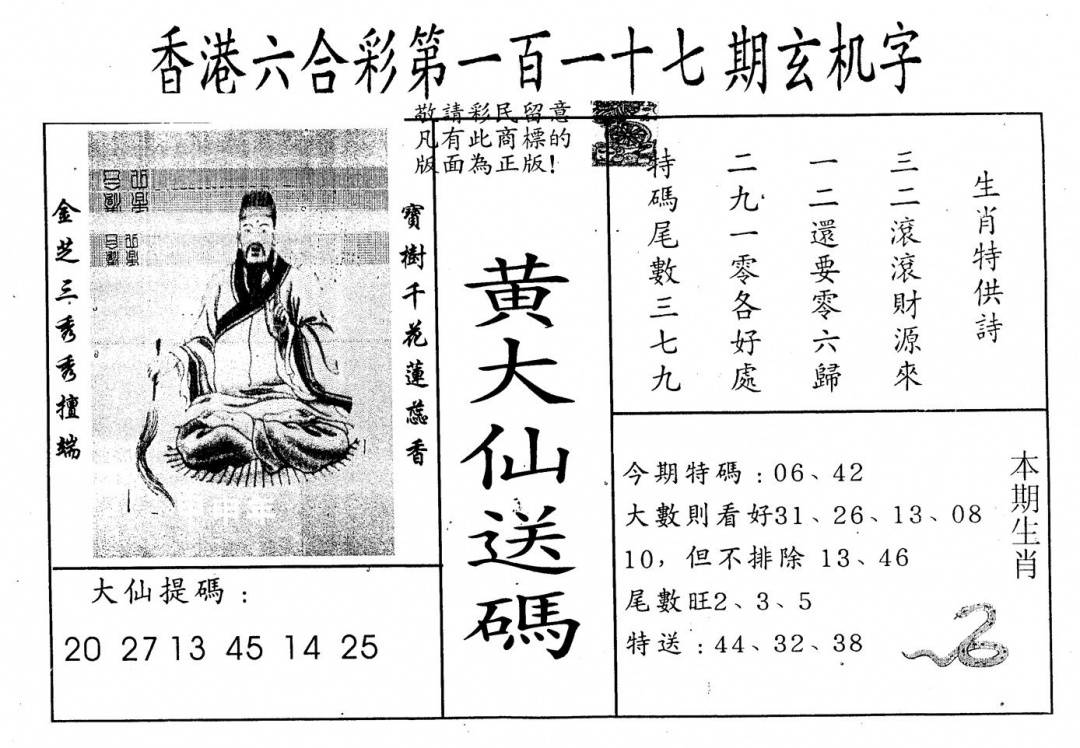 香港六合彩第一百一十七期玄机字
敬請彩民留意
凡有此商標的
版面為正版!
金芝三秀秀擅端
寶樹千花蓮蕊香
大仙提碼：
20 27 13 45 14 25
黄大仙送碼
生肖特供詩
三二滾滾財源來
一二還要零六歸
二九一零各好處
特碼尾數三七九
本期生肖
今期特碼：06、42
大數則看好31、26、13、08
10，但不排除 13、46
尾數旺2、3、5
特送：44、32、38